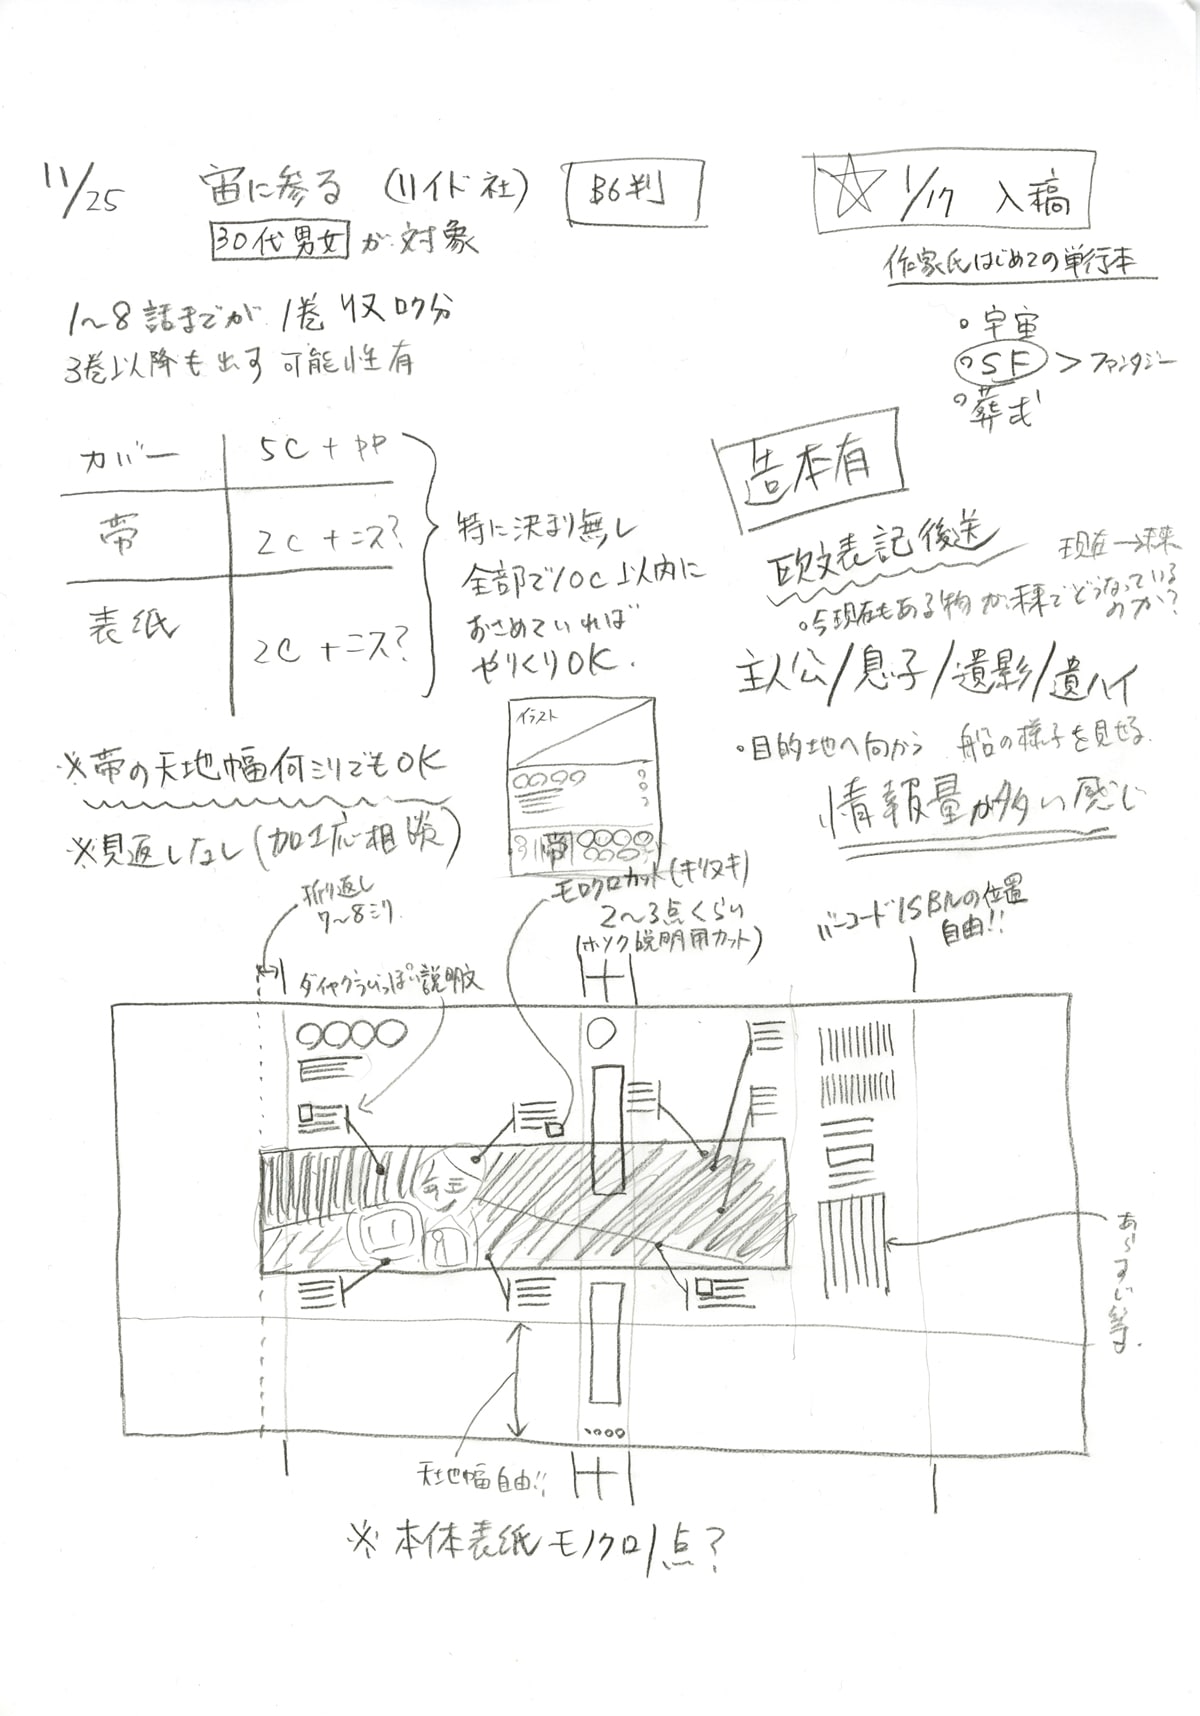 11/25
宙に参る (リイド社)
B6判
☆ 1/17 入稿
30代男女 が 対象
作家氏はじめての単行本
1〜8話までが 1巻 収ロク分
3巻以降も出す可能性有
。宇宙
。SF > ファンタジー
。葬式
カバー 5C + PP
帯 2C + ニス?
表紙 2C + ニス?
特に決まり無し
全部で10C以内に
おさめていれば
やりくりOK.
造本有
欧文表記後送
現在→未来
。今現在もある物が未来でどうなっている
のか?
主人公/息子/遺影/遺ハイ
。目的地へ向かう 船の様子を見せる.
情報量が多い感じ
※帯の天地幅何ミリでもOK
※見返しなし(加工応相談)
イラスト
帯
折り返し
7〜8ミリ
モノクロカット(キリヌキ)
2〜3点くらい
(ホソク説明用カット)
バーコードISBNの位置
自由!!
ダイヤグラムっぽい説明文
あらすじ等.
天地幅自由!!
※本体表紙モノクロ1点?